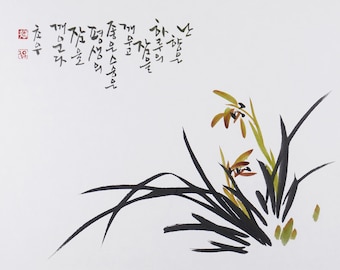 난
향은
하루의
잠을
깨우고
좋은 스승은
평생의
잠을
깨운다